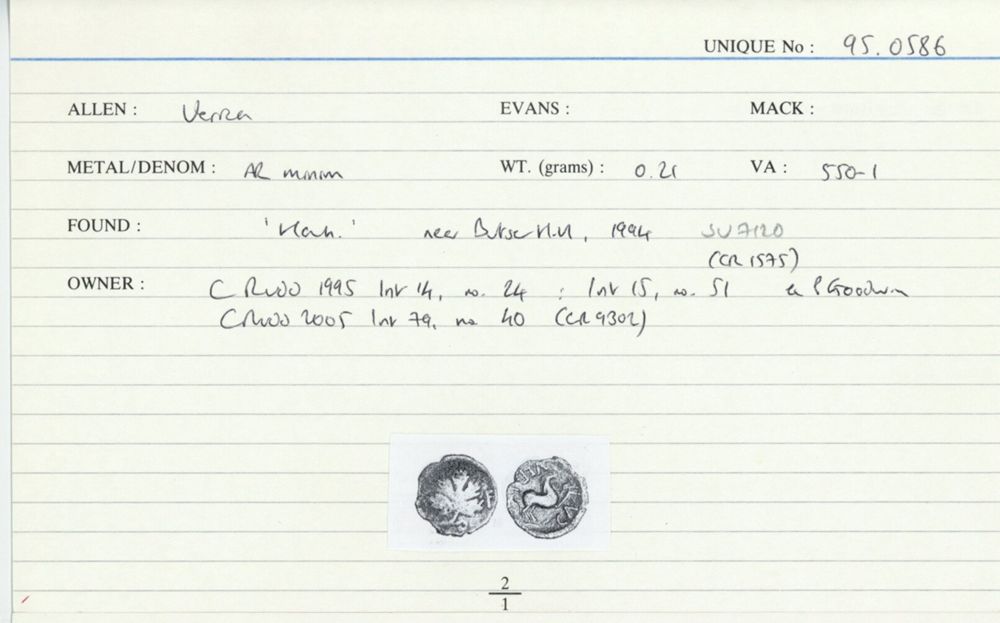 UNIQUE No : 95.0586
ALLEN : Verica EVANS : MACK :
METAL/DENOM : AR minim WT. (grams) : 0.21 VA : 550-1
FOUND : near Butser Hill, 1994 SU 7120
(CR 1575)
OWNER : C Rudd 1995 List 14, no. 24 : List 15, no. 51 ex P Goodwin
C Rudd 2005 List 79, no 40 (CR 9302)
2
1